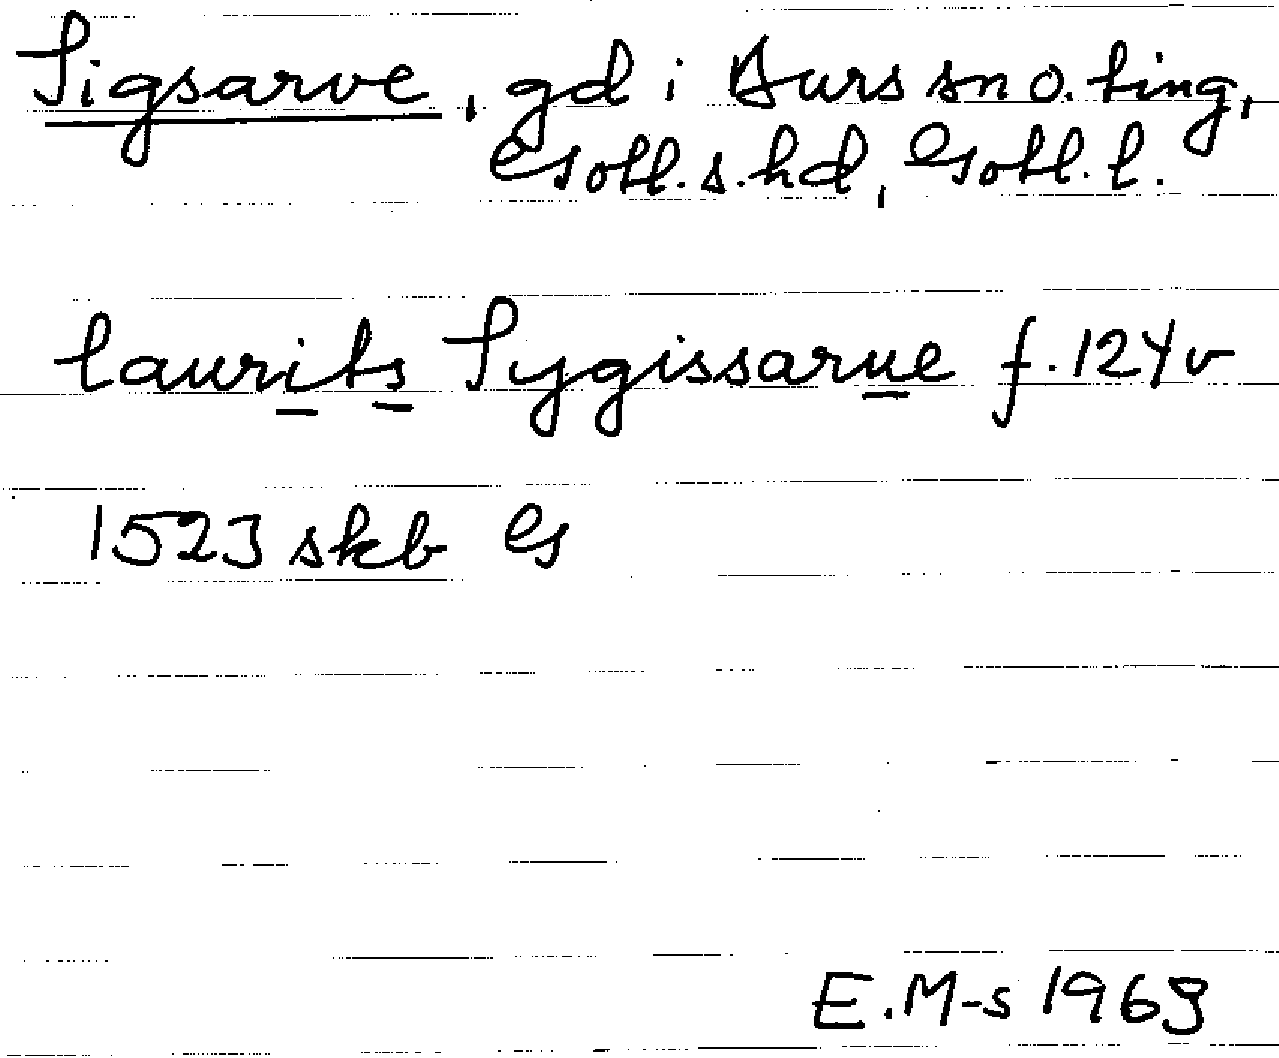 Sigsarve, gd i Burs sn o. ting,
Gotl.s.hd, Gotl.l.
laurits Sygissarue f.124v
1523 skb G
E.M-s 1969